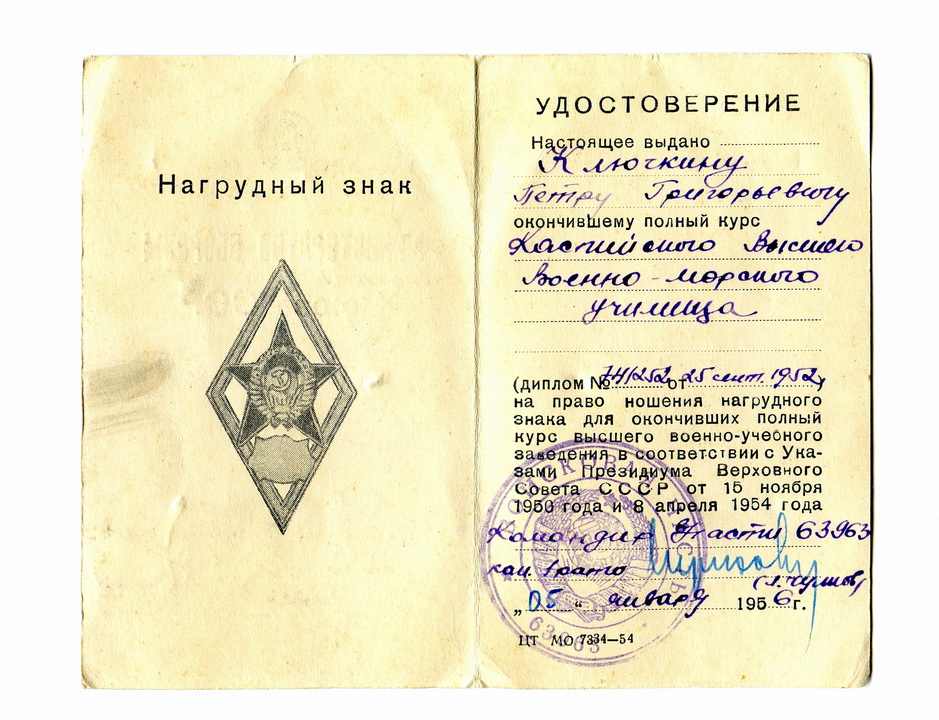 Нагрудный знак
УДОСТОВЕРЕНИЕ
Настоящее выдано
Ключкину
Петру Григорьевичу
окончившему полный курс
Каспийского Высшего
Военно-морского
училища
(диплом № 252 от 25 сент. 1952)
на право ношения нагрудного
знака для окончивших полный
курс высшего военно-учебного
заведения в соответствии с Ука-
зами Президиума Верховного
Совета СССР от 15 ноября
1950 года и 8 апреля 1954 года
Командир Части 63963
кап. 1 ранга
„05“ января 1956 г.
ЦТ МО 7334—54
ВОЙСКОВАЯ ЧАСТЬ
63963